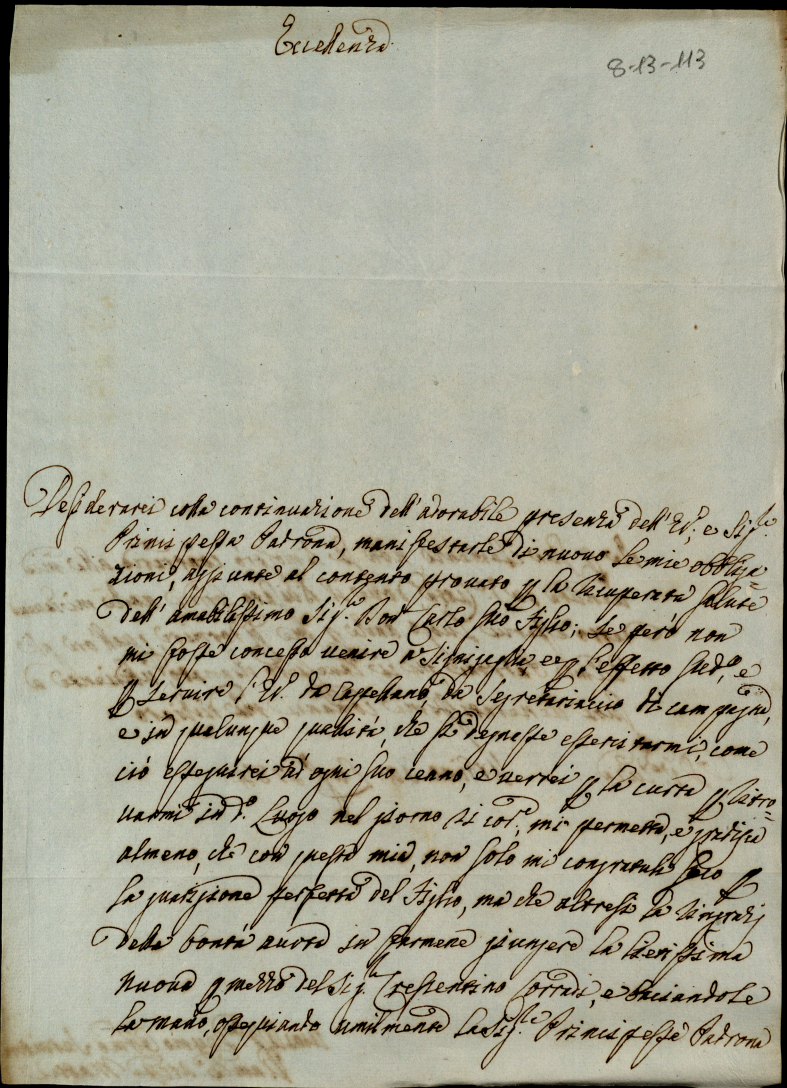 Eccellenza
8-13-113
Desiderarei colla continuazione dell'adorabile presenza dell'E.V. e Sig.re
Principessa Padrona, manifestarle di nuovo le mie obbliga=
zioni, aggiunte al contento provato p la ricuperata salute
dell'amabilissimo Sig.r Don Carlo suo Figlio; se però non
mi fosse concesso venire a Sinigaglia p l'effetto sud.o, e
p servire l'E.V. da Cappellano, da Segretariaccio di campagna,
e in qualunque qualità, che si degnasse esercitarmi, come
ciò esseguirei ad ogni suo cenno, e verrei p la curta p ritro=
varmi in d.o Luogo nel giorno di cor.e, mi permetta, e gradisca
almeno, che con questa mia, non solo mi congratuli seco p
la guarigione perfetta del Figlio, ma che altresì la ringrazj
della bontà avuta in farmene giungere la lietissima
nuova p mezzo del Sig.r Crescentino Corradi, e baciandole
la mano, ossequiando umilmente la Sig.re Principesse Padrona